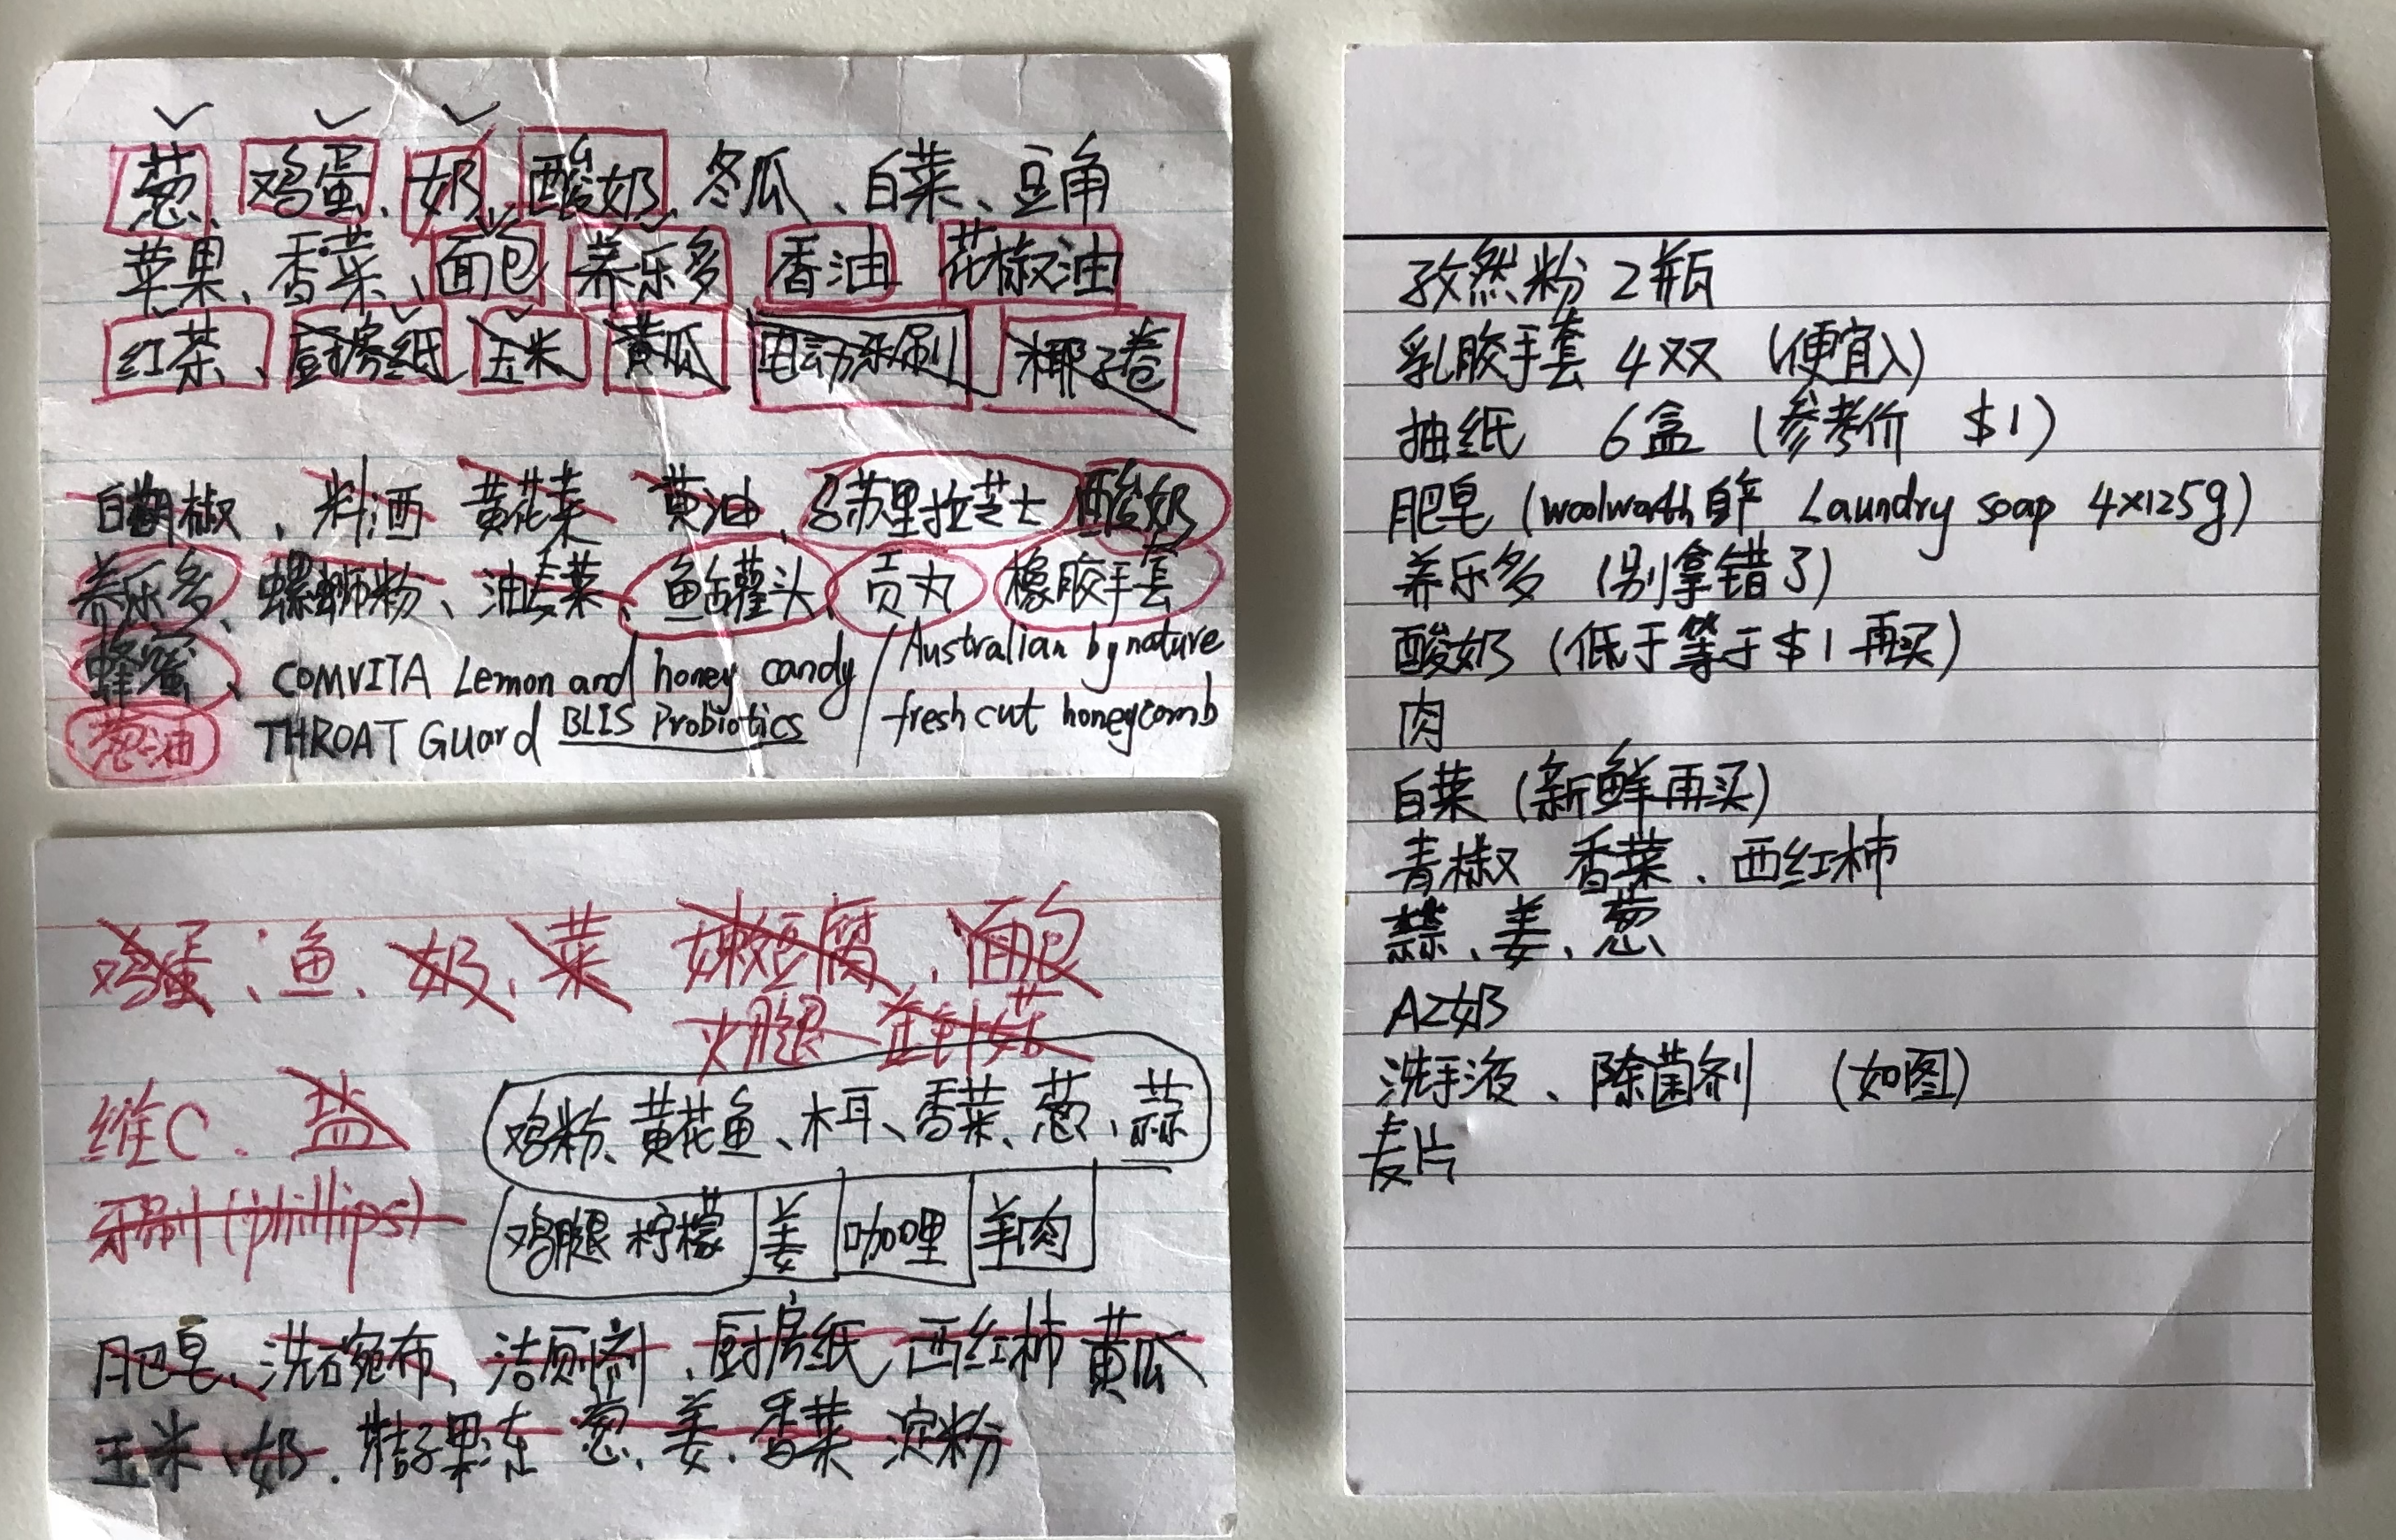 葱、鸡蛋、奶、酸奶、冬瓜、白菜、豆角
苹果、香菜、面包 养乐多 香油 花椒油
红茶、厨房纸 玉米 黄瓜 电动牙刷 椰子卷
白胡椒、料酒 黄花菜 黄油、马苏里拉芝士 酸奶
养乐多、螺蛳粉、油麦菜、鱼罐头、贡丸 橡胶手套
蜂蜜、COMVITA Lemon and honey candy / Australian by nature
葱油 THROAT Guard BLIS Probiotics / fresh cut honeycomb
鸡蛋、鱼、奶、菜 嫩豆腐、面包
火腿 金针菇
维C、盐
鸡粉、黄花鱼、木耳、香菜、葱、蒜
牙刷(phillips)
鸡腿 柠檬 姜 咖哩 羊肉
肥皂、洗碗布、洁厕剂、厨房纸 西红柿 黄瓜
玉米、奶、桔子果冻 葱、姜、香菜 淀粉
孜然粉 2瓶
乳胶手套 4双 (便宜入)
抽纸 6盒 (参考价 $1)
肥皂 (woolworth自产 Laundry soap 4×125g)
养乐多 (别拿错了)
酸奶 (低于等于$1再买)
肉
白菜 (新鲜再买)
青椒 香菜、西红柿
蒜、姜、葱
A2奶
洗手液、除菌剂 (如图)
麦片